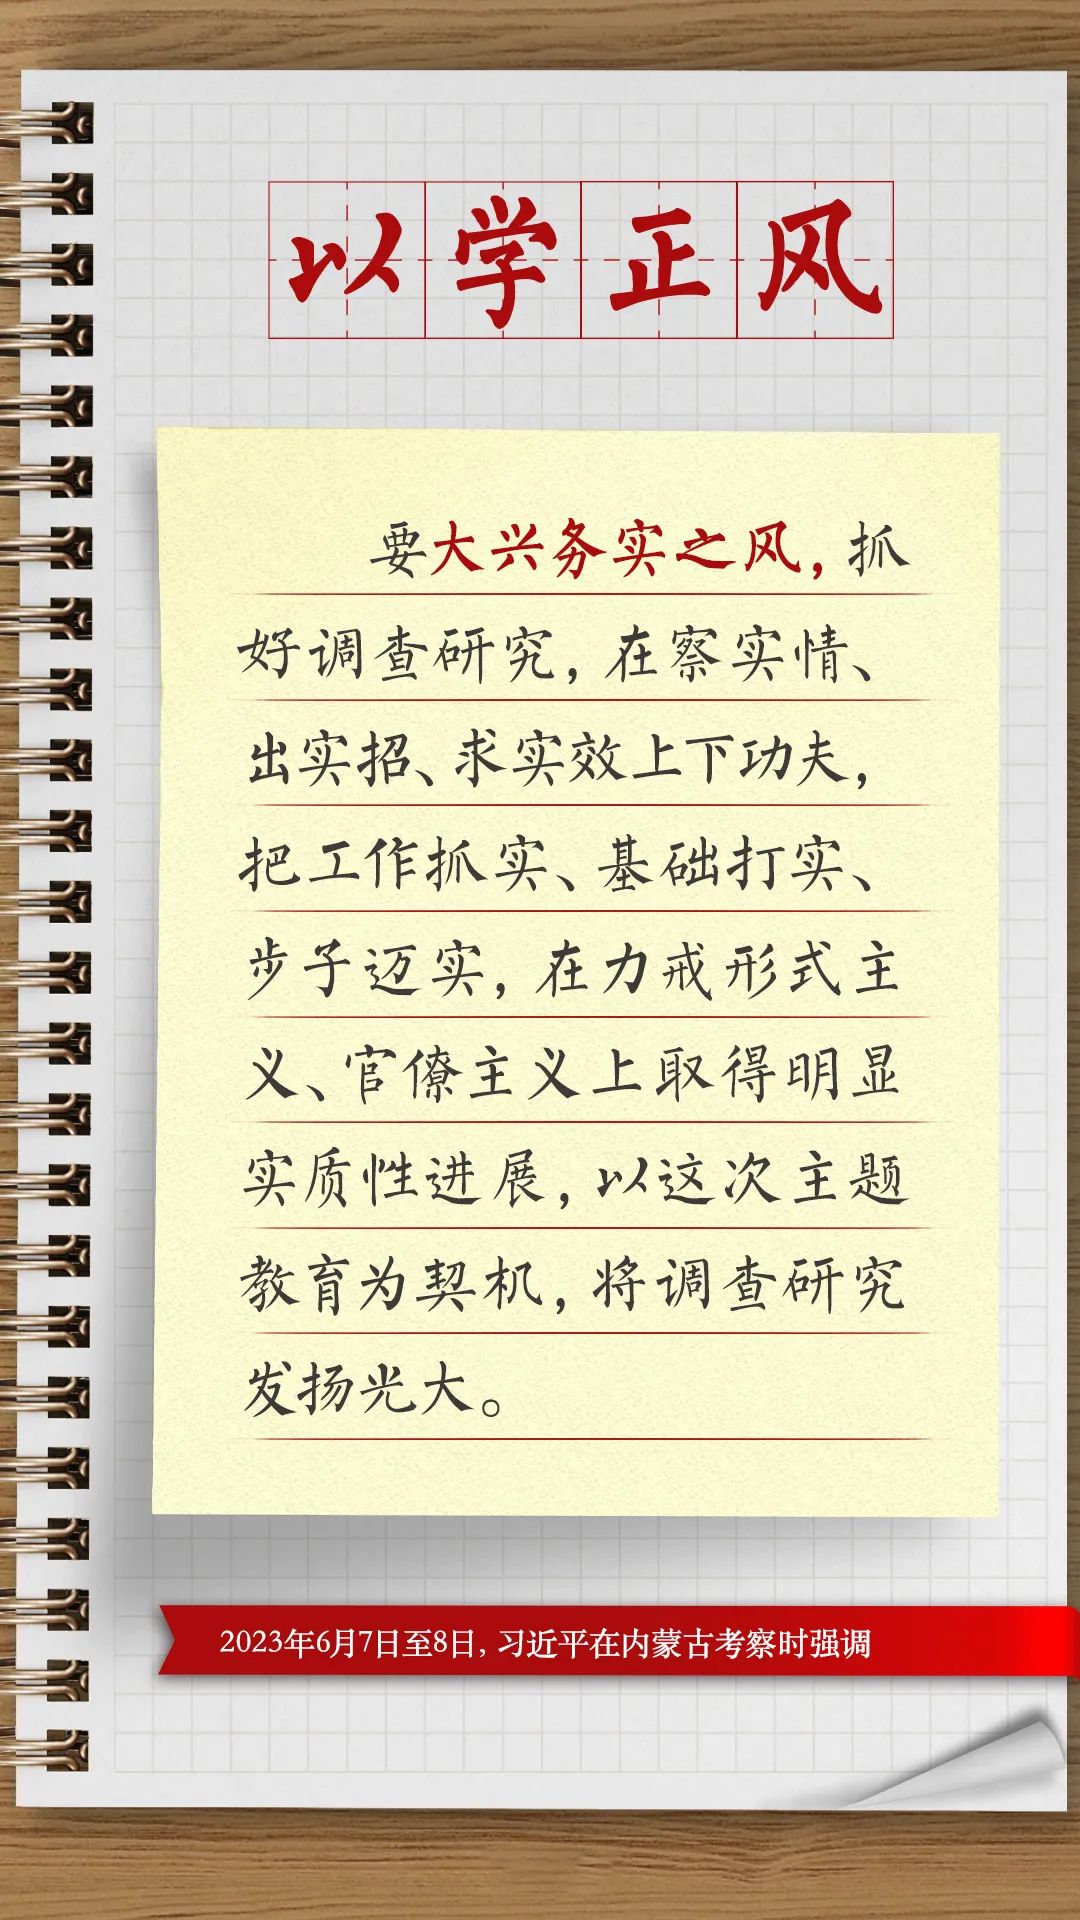 以学正风
要大兴务实之风，抓
好调查研究，在察实情、
出实招、求实效上下功夫，
把工作抓实、基础打实、
步子迈实，在力戒形式主
义、官僚主义上取得明显
实质性进展，以这次主题
教育为契机，将调查研究
发扬光大。
2023年6月7日至8日，习近平在内蒙古考察时强调